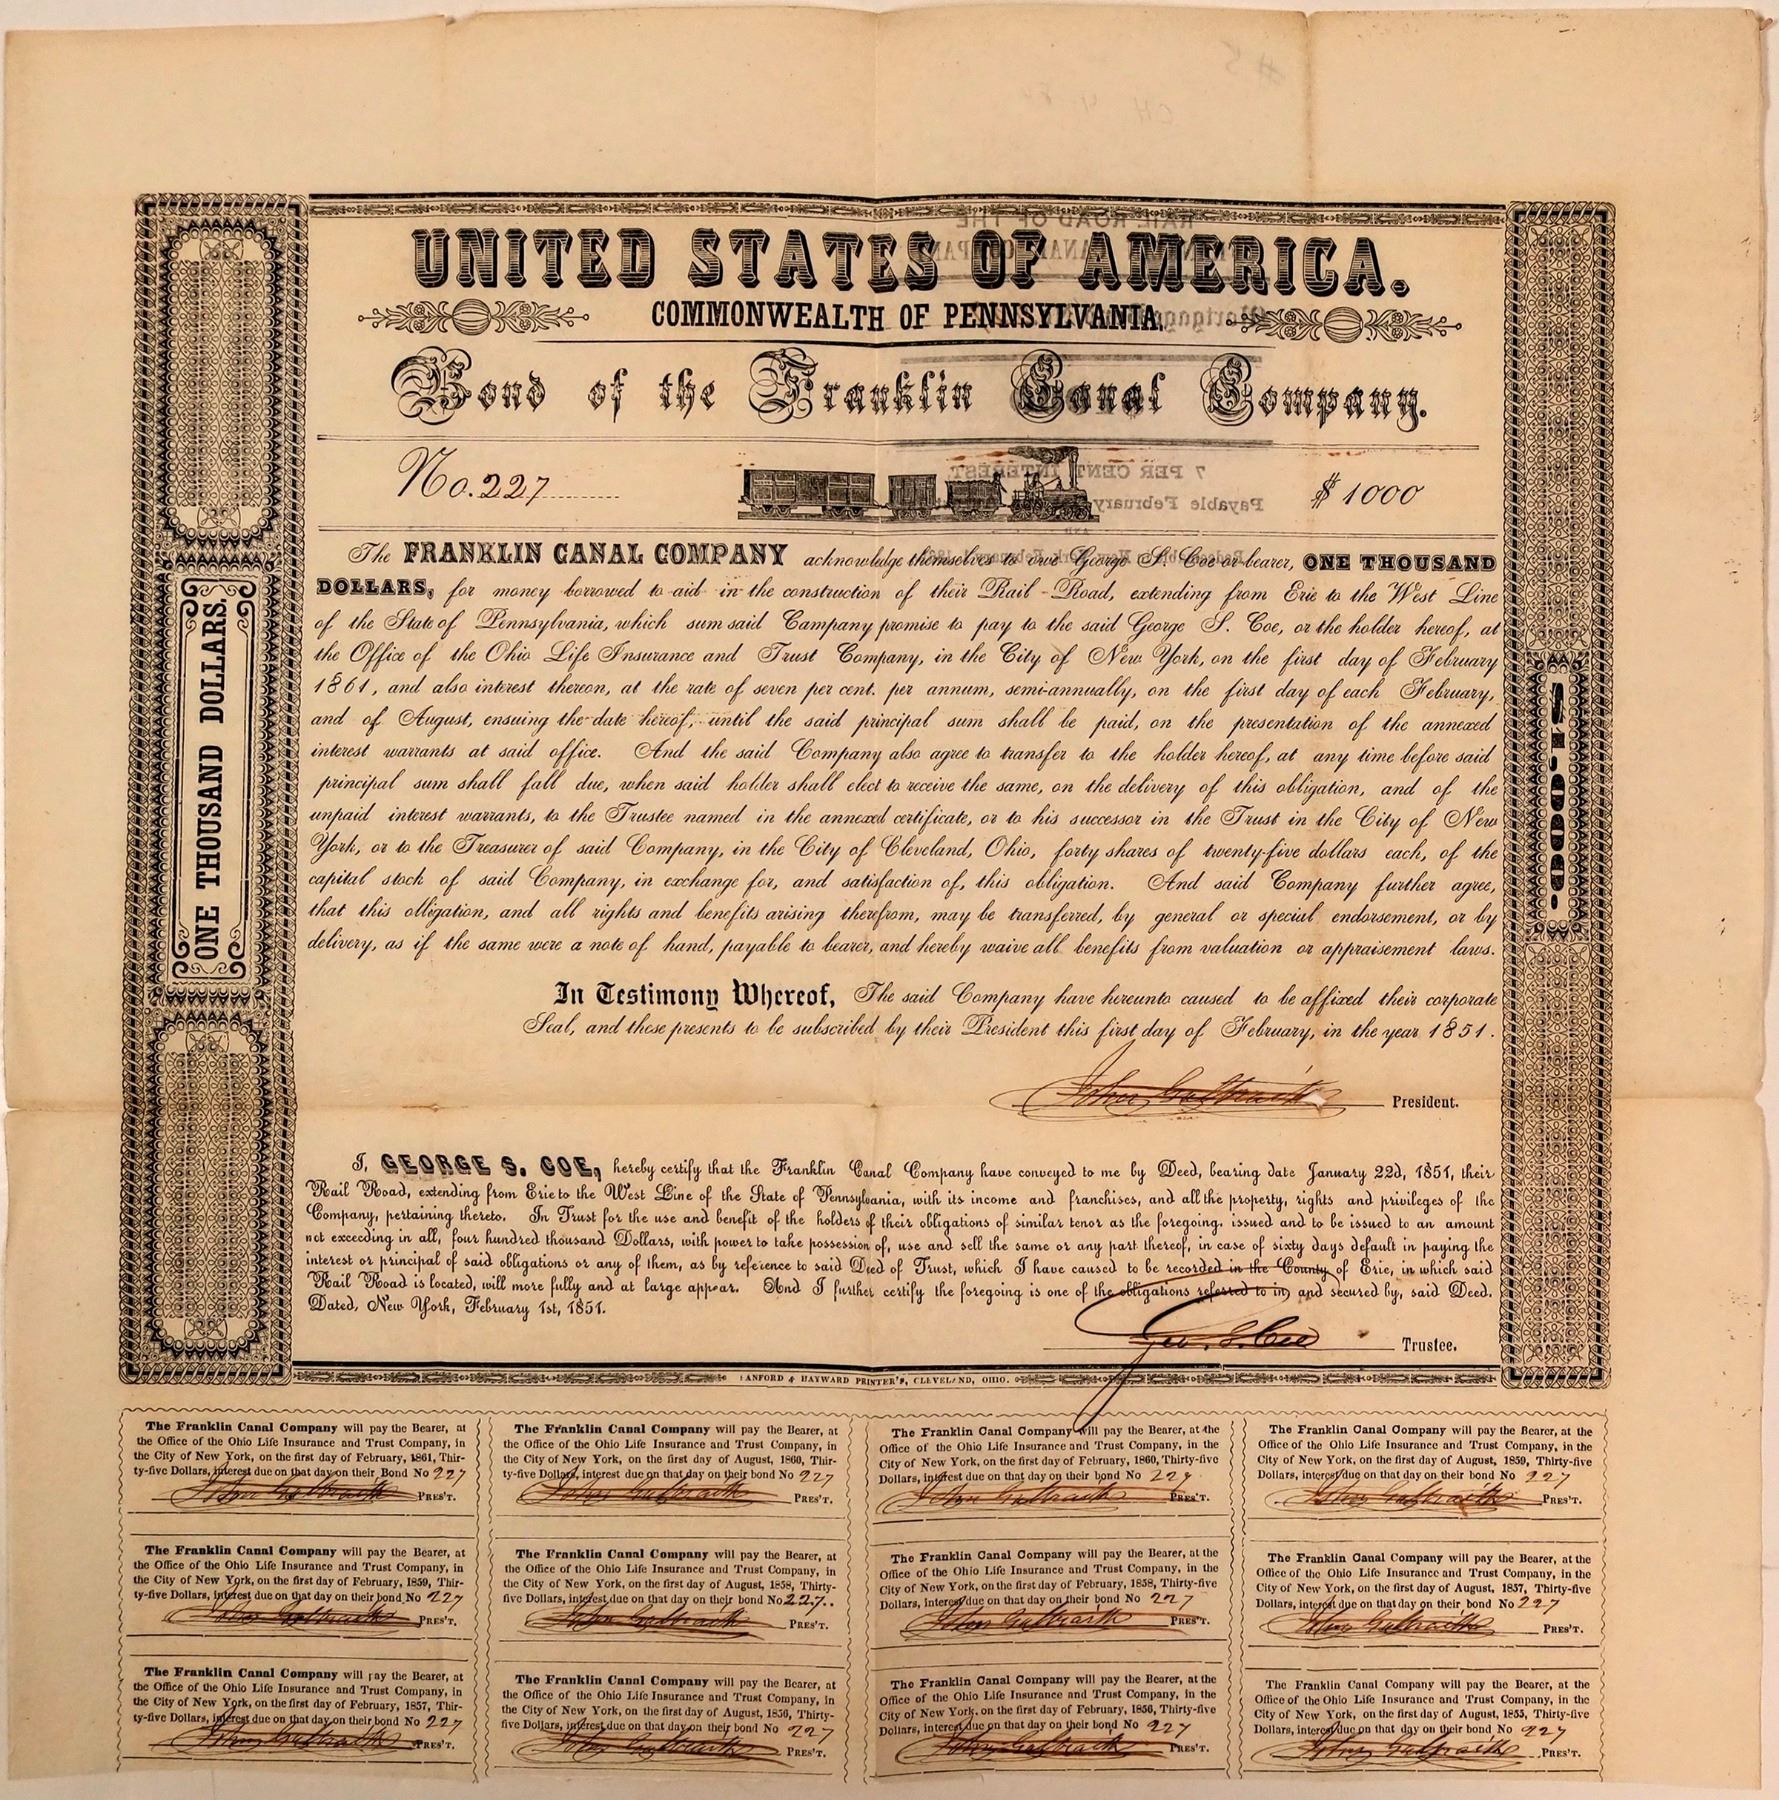 UNITED STATES OF AMERICA.
COMMONWEALTH OF PENNSYLVANIA,
Bond of the Franklin Canal Company.
No. 227
$1000
7 PER CENT INTEREST
Payable February
The FRANKLIN CANAL COMPANY acknowledge themselves to owe George S. Coe or bearer, ONE THOUSAND
DOLLARS, for money borrowed to aid in the construction of their Rail-Road, extending from Erie to the West Line
of the State of Pennsylvania, which sum said Campany promise to pay to the said George S. Coe, or the holder hereof, at
the Office of the Ohio Life Insurance and Trust Company, in the City of New York, on the first day of February
1861, and also interest thereon, at the rate of seven per cent. per annum, semi-annually, on the first day of each February,
and of August, ensuing the date hereof, until the said principal sum shall be paid, on the presentation of the annexed
interest warrants at said office. And the said Company also agree to transfer to the holder hereof, at any time before said
principal sum shall fall due, when said holder shall elect to receive the same, on the delivery of this obligation, and of the
unpaid interest warrants, to the Trustee named in the annexed certificate, or to his successor in the Trust in the City of New
York, or to the Treasurer of said Company, in the City of Cleveland, Ohio, forty shares of twenty-five dollars each, of the
capital stock of said Company, in exchange for, and satisfaction of, this obligation. And said Company further agree,
that this obligation, and all rights and benefits arising therefrom, may be transferred, by general or special endorsement, or by
delivery, as if the same were a note of hand, payable to bearer, and hereby waive all benefits from valuation or appraisement laws.
In Testimony Whereof, The said Company have hereunto caused to be affixed their corporate
Seal, and these presents to be subscribed by their President this first day of February, in the year 1851.
John Galbraith President.
I, GEORGE S. COE, hereby certify that the Franklin Canal Company have conveyed to me by Deed, bearing date January 22d, 1851, their
Rail Road, extending from Erie to the West Line of the State of Pennsylvania, with its income and franchises, and all the property, rights and privileges of the
Company, pertaining thereto. In Trust for the use and benefit of the holders of their obligations of similar tenor as the foregoing, issued and to be issued to an amount
not exceeding in all, four hundred thousand Dollars, with power to take possession of, use and sell the same or any part thereof, in case of sixty days default in paying the
interest or principal of said obligations or any of them, as by reference to said Deed of Trust, which I have caused to be recorded in the County of Erie, in which said
Rail Road is located, will more fully and at large appear. And I further certify the foregoing is one of the obligations referred to in, and secured by, said Deed.
Dated, New York, February 1st, 1851.
Geo. S. Coe Trustee.
ANFORD & HAYWARD PRINTER'S, CLEVELAND, OHIO.
ONE THOUSAND DOLLARS.
$1,000.
The Franklin Canal Company will pay the Bearer, at
the Office of the Ohio Life Insurance and Trust Company, in
the City of New York, on the first day of February, 1861, Thir-
ty-five Dollars, interest due on that day on their Bond No 227
John Galbraith PRES'T.
The Franklin Canal Company will pay the Bearer, at
the Office of the Ohio Life Insurance and Trust Company, in
the City of New York, on the first day of August, 1860, Thir-
ty-five Dollars, interest due on that day on their bond No 227
John Galbraith PRES'T.
The Franklin Canal Company will pay the Bearer, at the
Office of the Ohio Life Insurance and Trust Company, in the
City of New York, on the first day of February, 1860, Thirty-five
Dollars, interest due on that day on their bond No 227
John Galbraith PRES'T.
The Franklin Canal Company will pay the Bearer, at the
Office of the Ohio Life Insurance and Trust Company, in the
City of New York, on the first day of August, 1859, Thirty-five
Dollars, interest due on that day on their bond No 227
John Galbraith PRES'T.
The Franklin Canal Company will pay the Bearer, at
the Office of the Ohio Life Insurance and Trust Company, in
the City of New York, on the first day of February, 1859, Thir-
ty-five Dollars, interest due on that day on their bond No 227
John Galbraith PRES'T.
The Franklin Canal Company will pay the Bearer, at
the Office of the Ohio Life Insurance and Trust Company, in
the City of New York, on the first day of August, 1858, Thirty-
five Dollars, interest due on that day on their bond No 227.
John Galbraith PRES'T.
The Franklin Canal Company will pay the Bearer, at the
Office of the Ohio Life Insurance and Trust Company, in the
City of New York, on the first day of February, 1858, Thirty-five
Dollars, interest due on that day on their bond No 227
John Galbraith PRES'T.
The Franklin Canal Company will pay the Bearer, at the
Office of the Ohio Life Insurance and Trust Company, in the
City of New York, on the first day of August, 1857, Thirty-five
Dollars, interest due on that day on their bond No 227
John Galbraith PRES'T.
The Franklin Canal Company will pay the Bearer, at
the Office of the Ohio Life Insurance and Trust Company, in
the City of New York, on the first day of February, 1857, Thir-
ty-five Dollars, interest due on that day on their bond No 227
John Galbraith PRES'T.
The Franklin Canal Company will pay the Bearer, at
the Office of the Ohio Life Insurance and Trust Company, in
the City of New York, on the first day of August, 1856, Thirty-
five Dollars, interest due on that day on their bond No 227
John Galbraith PRES'T.
The Franklin Canal Company will pay the Bearer, at the
Office of the Ohio Life Insurance and Trust Company, in the
City of New York, on the first day of February, 1856, Thirty-five
Dollars, interest due on that day on their bond No 227
John Galbraith PRES'T.
The Franklin Canal Company will pay the Bearer, at the
Office of the Ohio Life Insurance and Trust Company, in the
City of New York, on the first day of August, 1855, Thirty-five
Dollars, interest due on that day on their bond No 227
John Galbraith PRES'T.